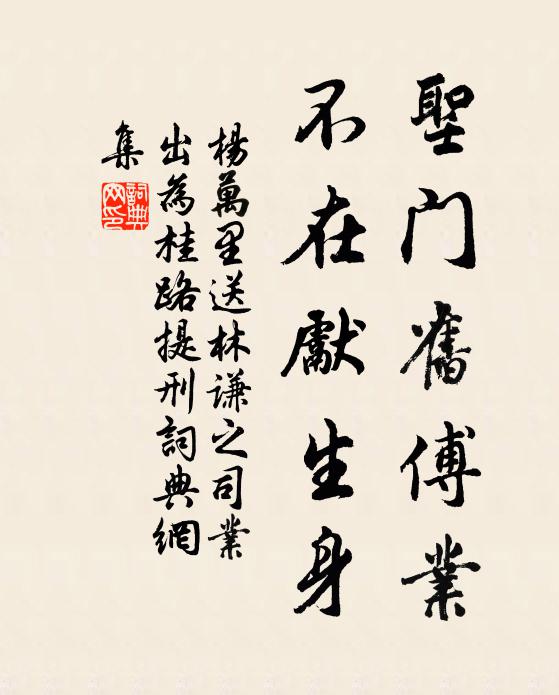 聖门舊傅業
不在獻生身
楊萬里送林谦之司業
出為桂路提刑詞典網
集
詞典
网印